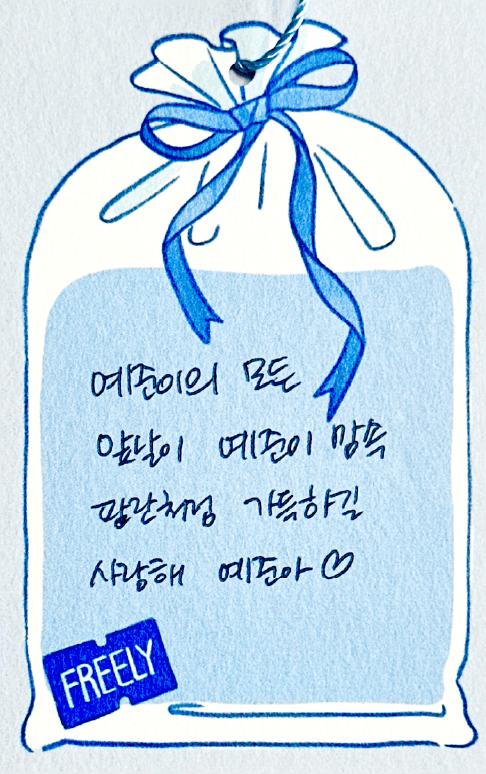 예준이의 모든
앞날이 예준이 맘속
가득하길
사랑해 예준아 ♡
FREELY